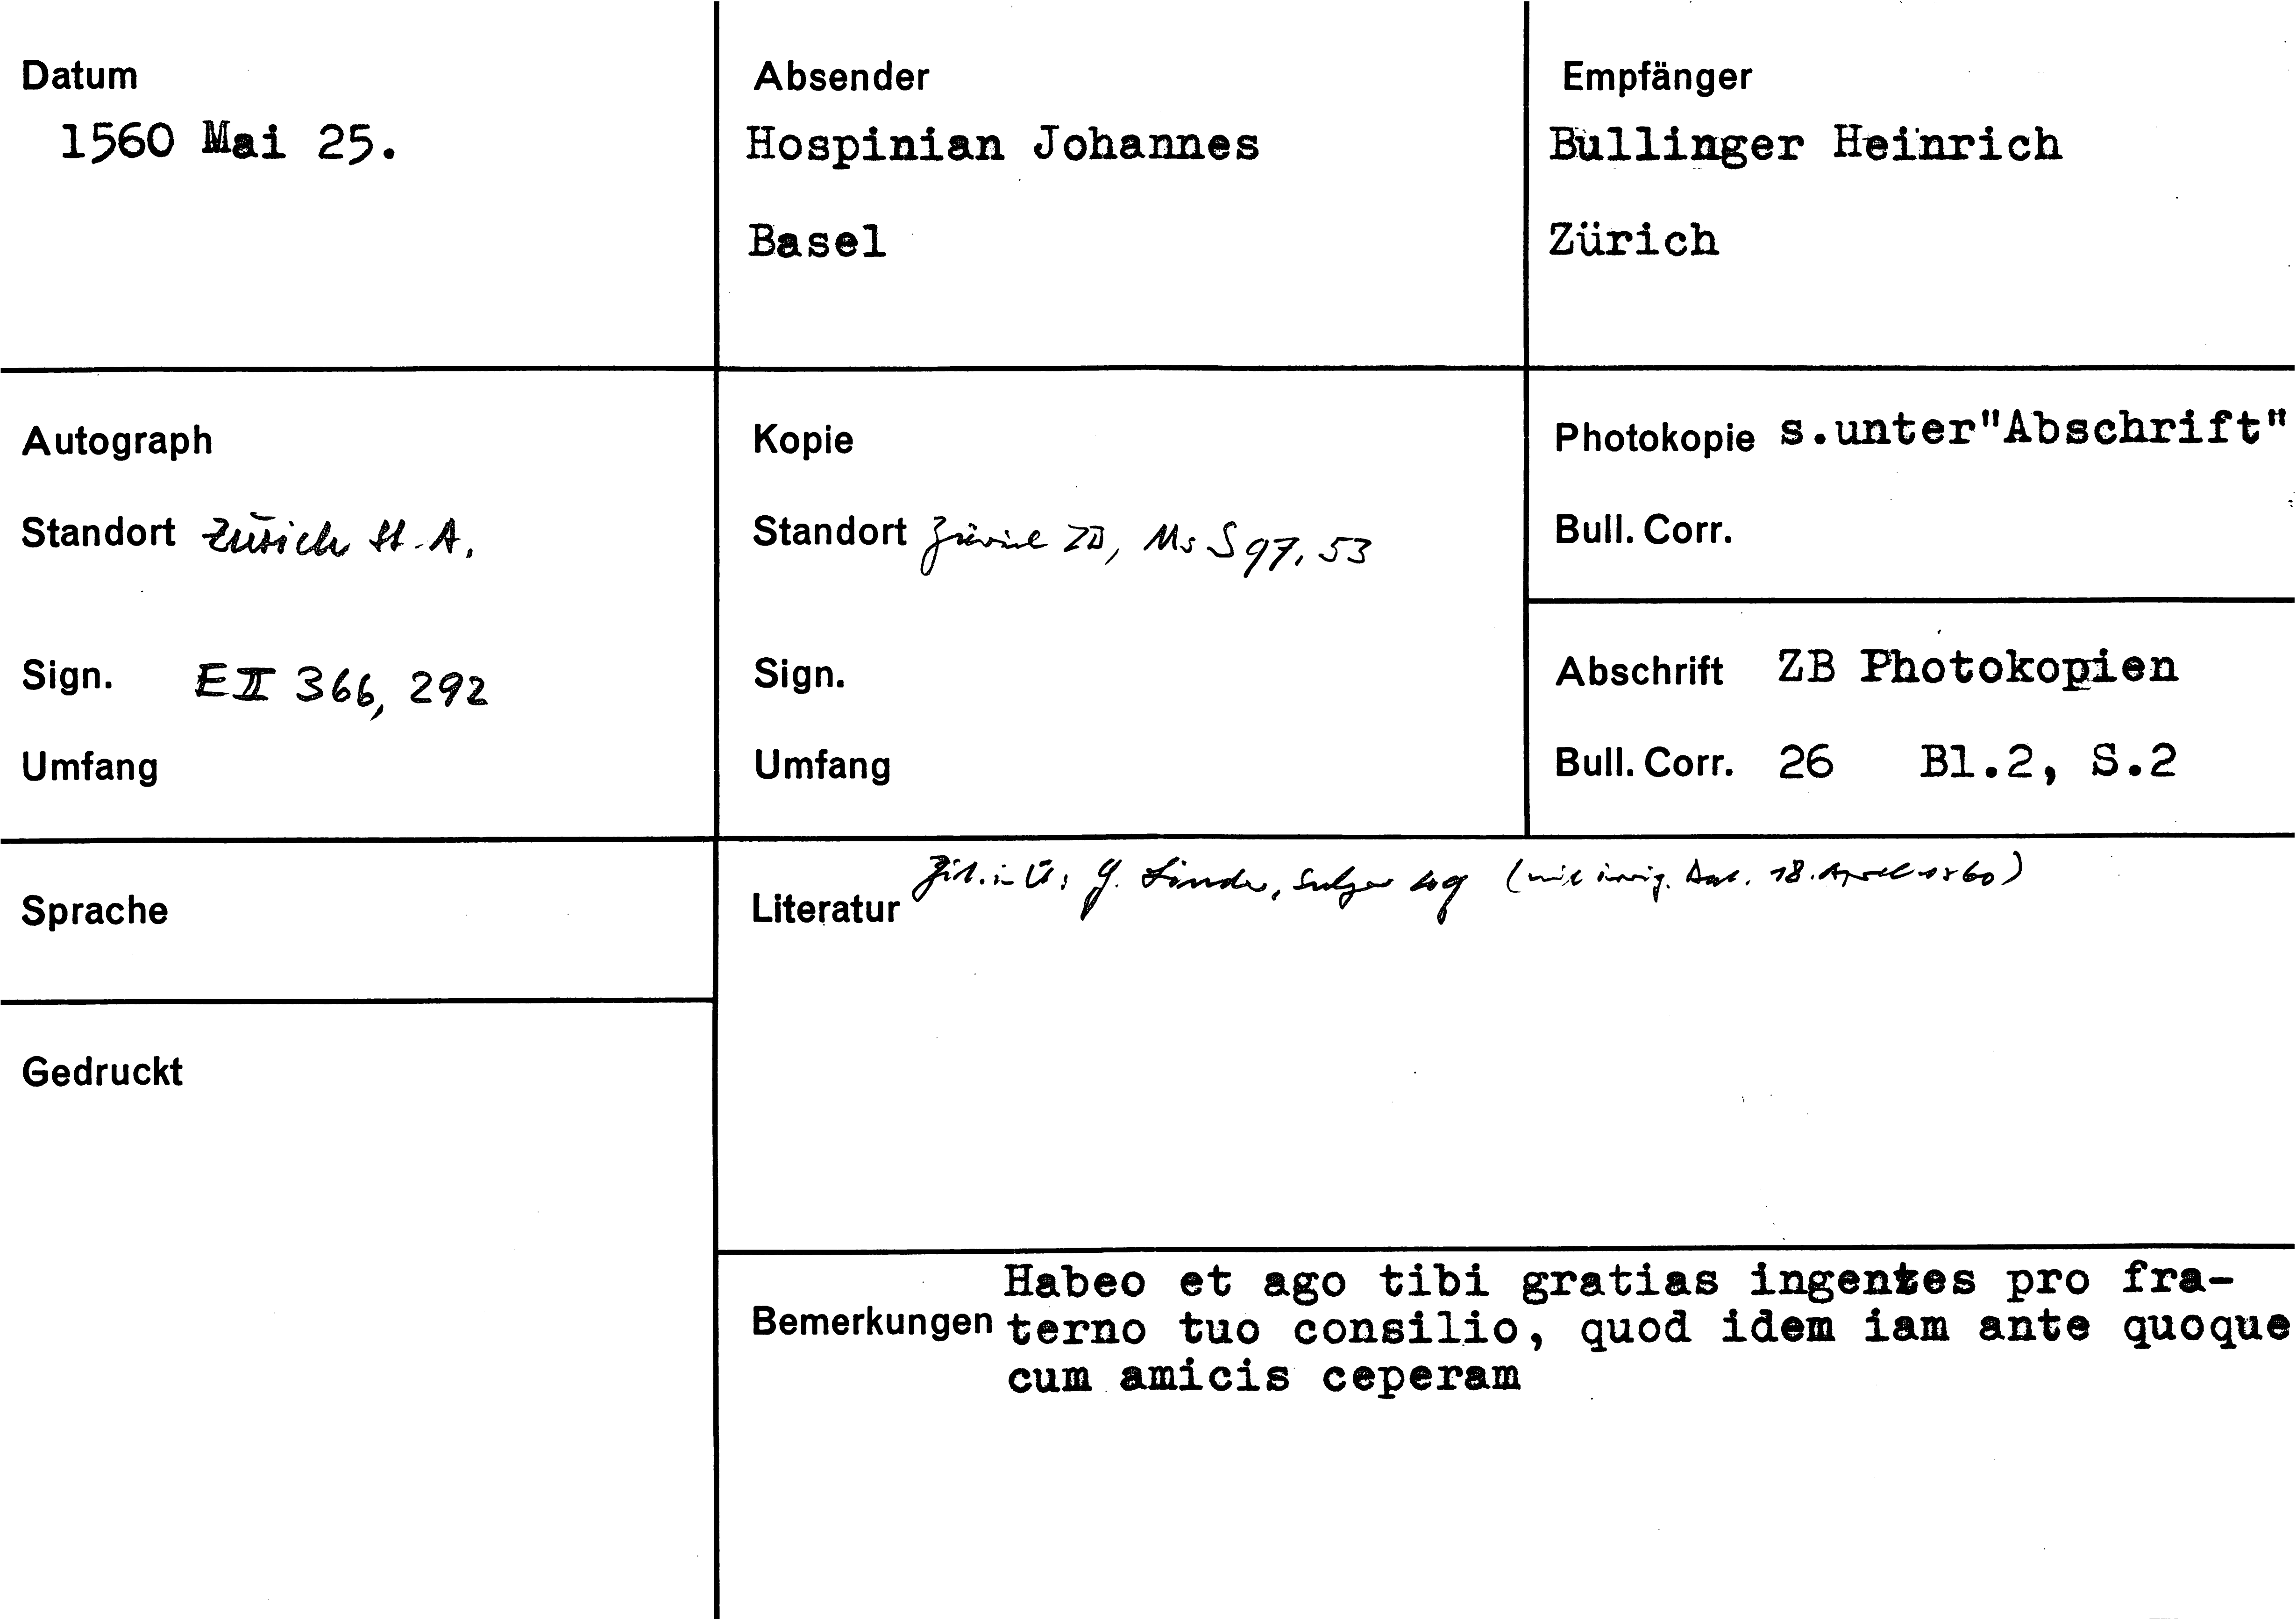 Datum
1560 Mai 25.
Absender
Hospinian Johannes
Basel
Empfänger
Bullinger Heinrich
Zürich
Autograph
Standort Zürich St.A.
Sign. E II 366, 292
Umfang
Kopie
Standort Zürich ZB, Ms S 97, 53
Sign.
Umfang
Photokopie s.unter"Abschrift"
Bull. Corr.
Abschrift ZB Photokopien
Bull. Corr. 26 Bl.2, S.2
Sprache
Gedruckt
Literatur Zit. in Ü: G. Linder, Sulzer (mit irrig. Dat. 18. April 1560)
Bemerkungen Habeo et ago tibi gratias ingentes pro fra-
terno tuo consilio, quod idem iam ante quoque
cum amicis ceperam